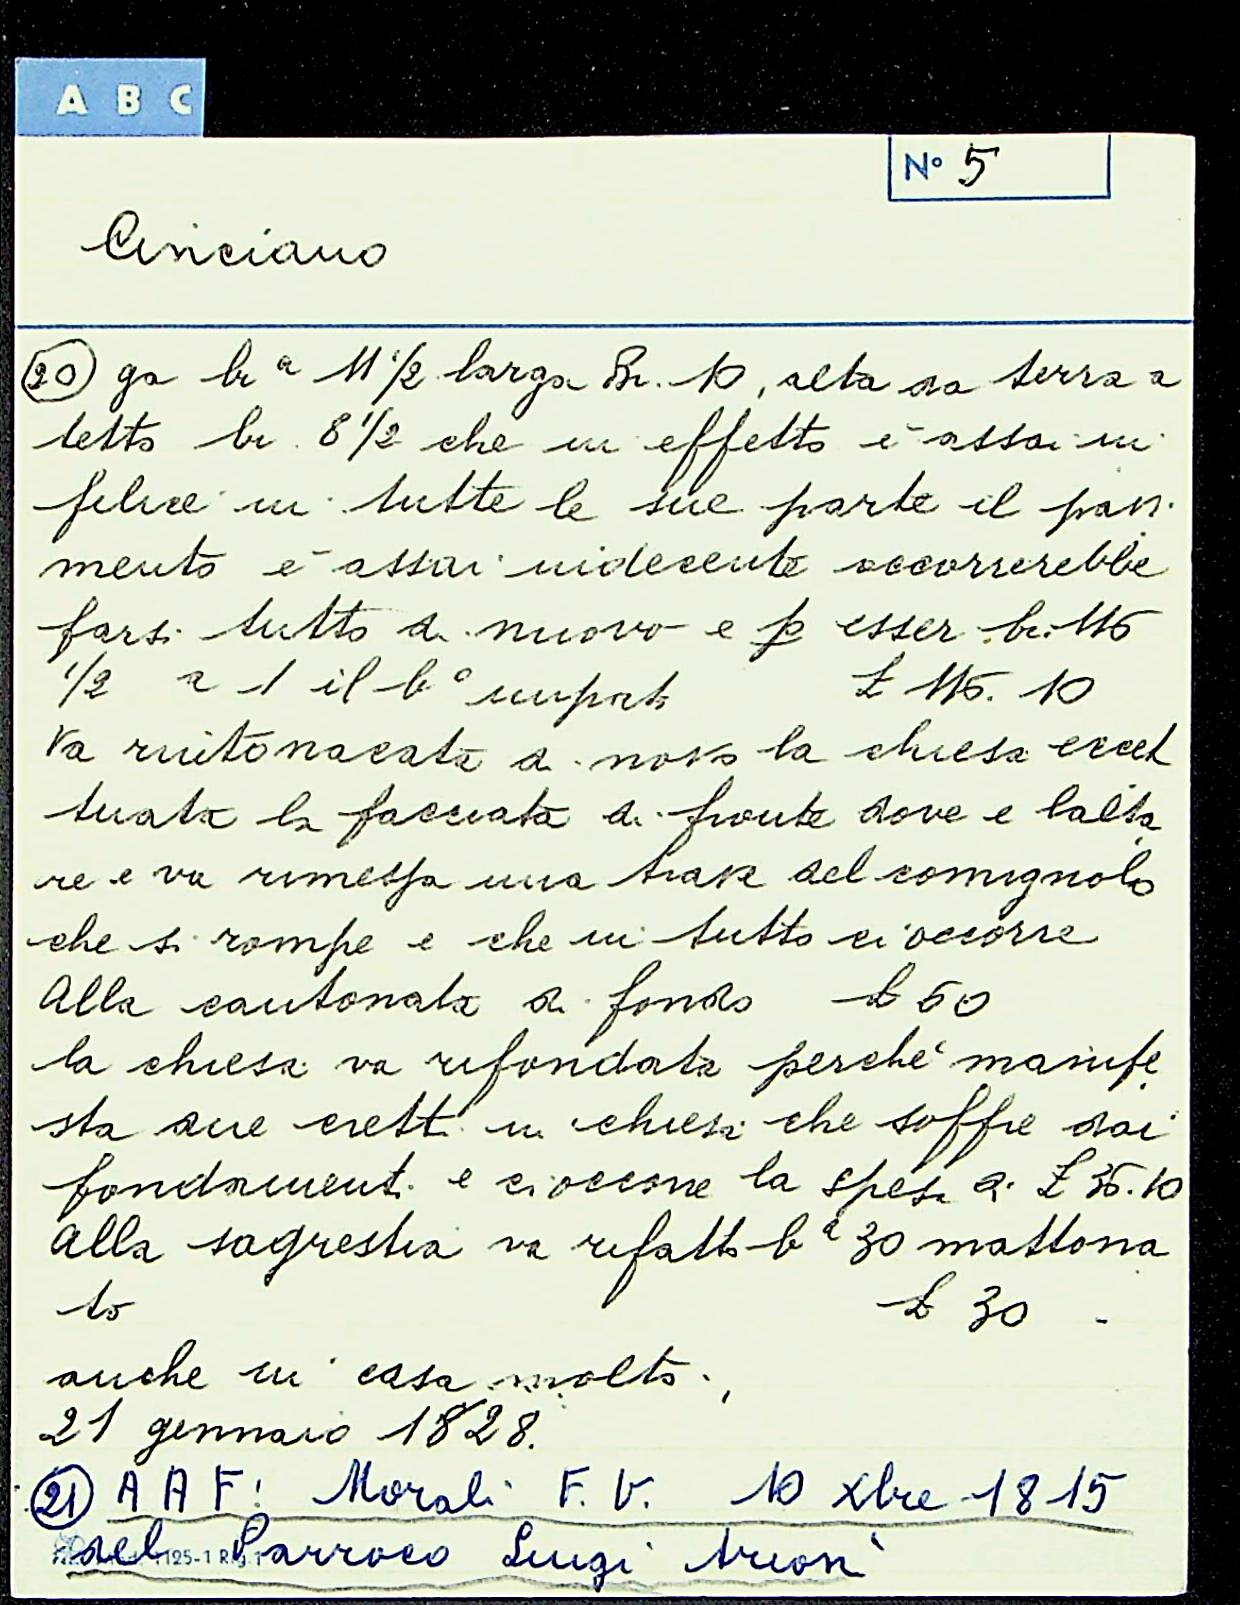 A B C
N° 5
Cinciano
20 ga br a 11 1/2 larga Br. 10, alta da terra a
tetto br. 8 1/2 che in effetto è assai in
felice in tutte le sue parte il pavi
mento è assai indecente occorrerebbe
farsi tutto di nuovo e p esser br. 115
1/2 a 1 il b° import £ 115. 10
Va rintonacata di novo la chiesa eccet
tuata la facciata di fronte dove e lalta
re e va rimessa una trave del comignolo
che si rompe e che in tutto ci occorre
Alla cantonata di fondo £ 60
la chiesa va rifondata perchè manife
sta due cretti in chiesa che soffre dai
fondamenti e ci occorre la spesa di £ 35.10
Alla sagrestia va rifatto b a 30 mattona
to £ 30 -
anche in casa molto.,
21 gennaio 1828.
21 A A F: Morali F. V. 10 Xbre 1815
del Parroco Luigi
1125-1